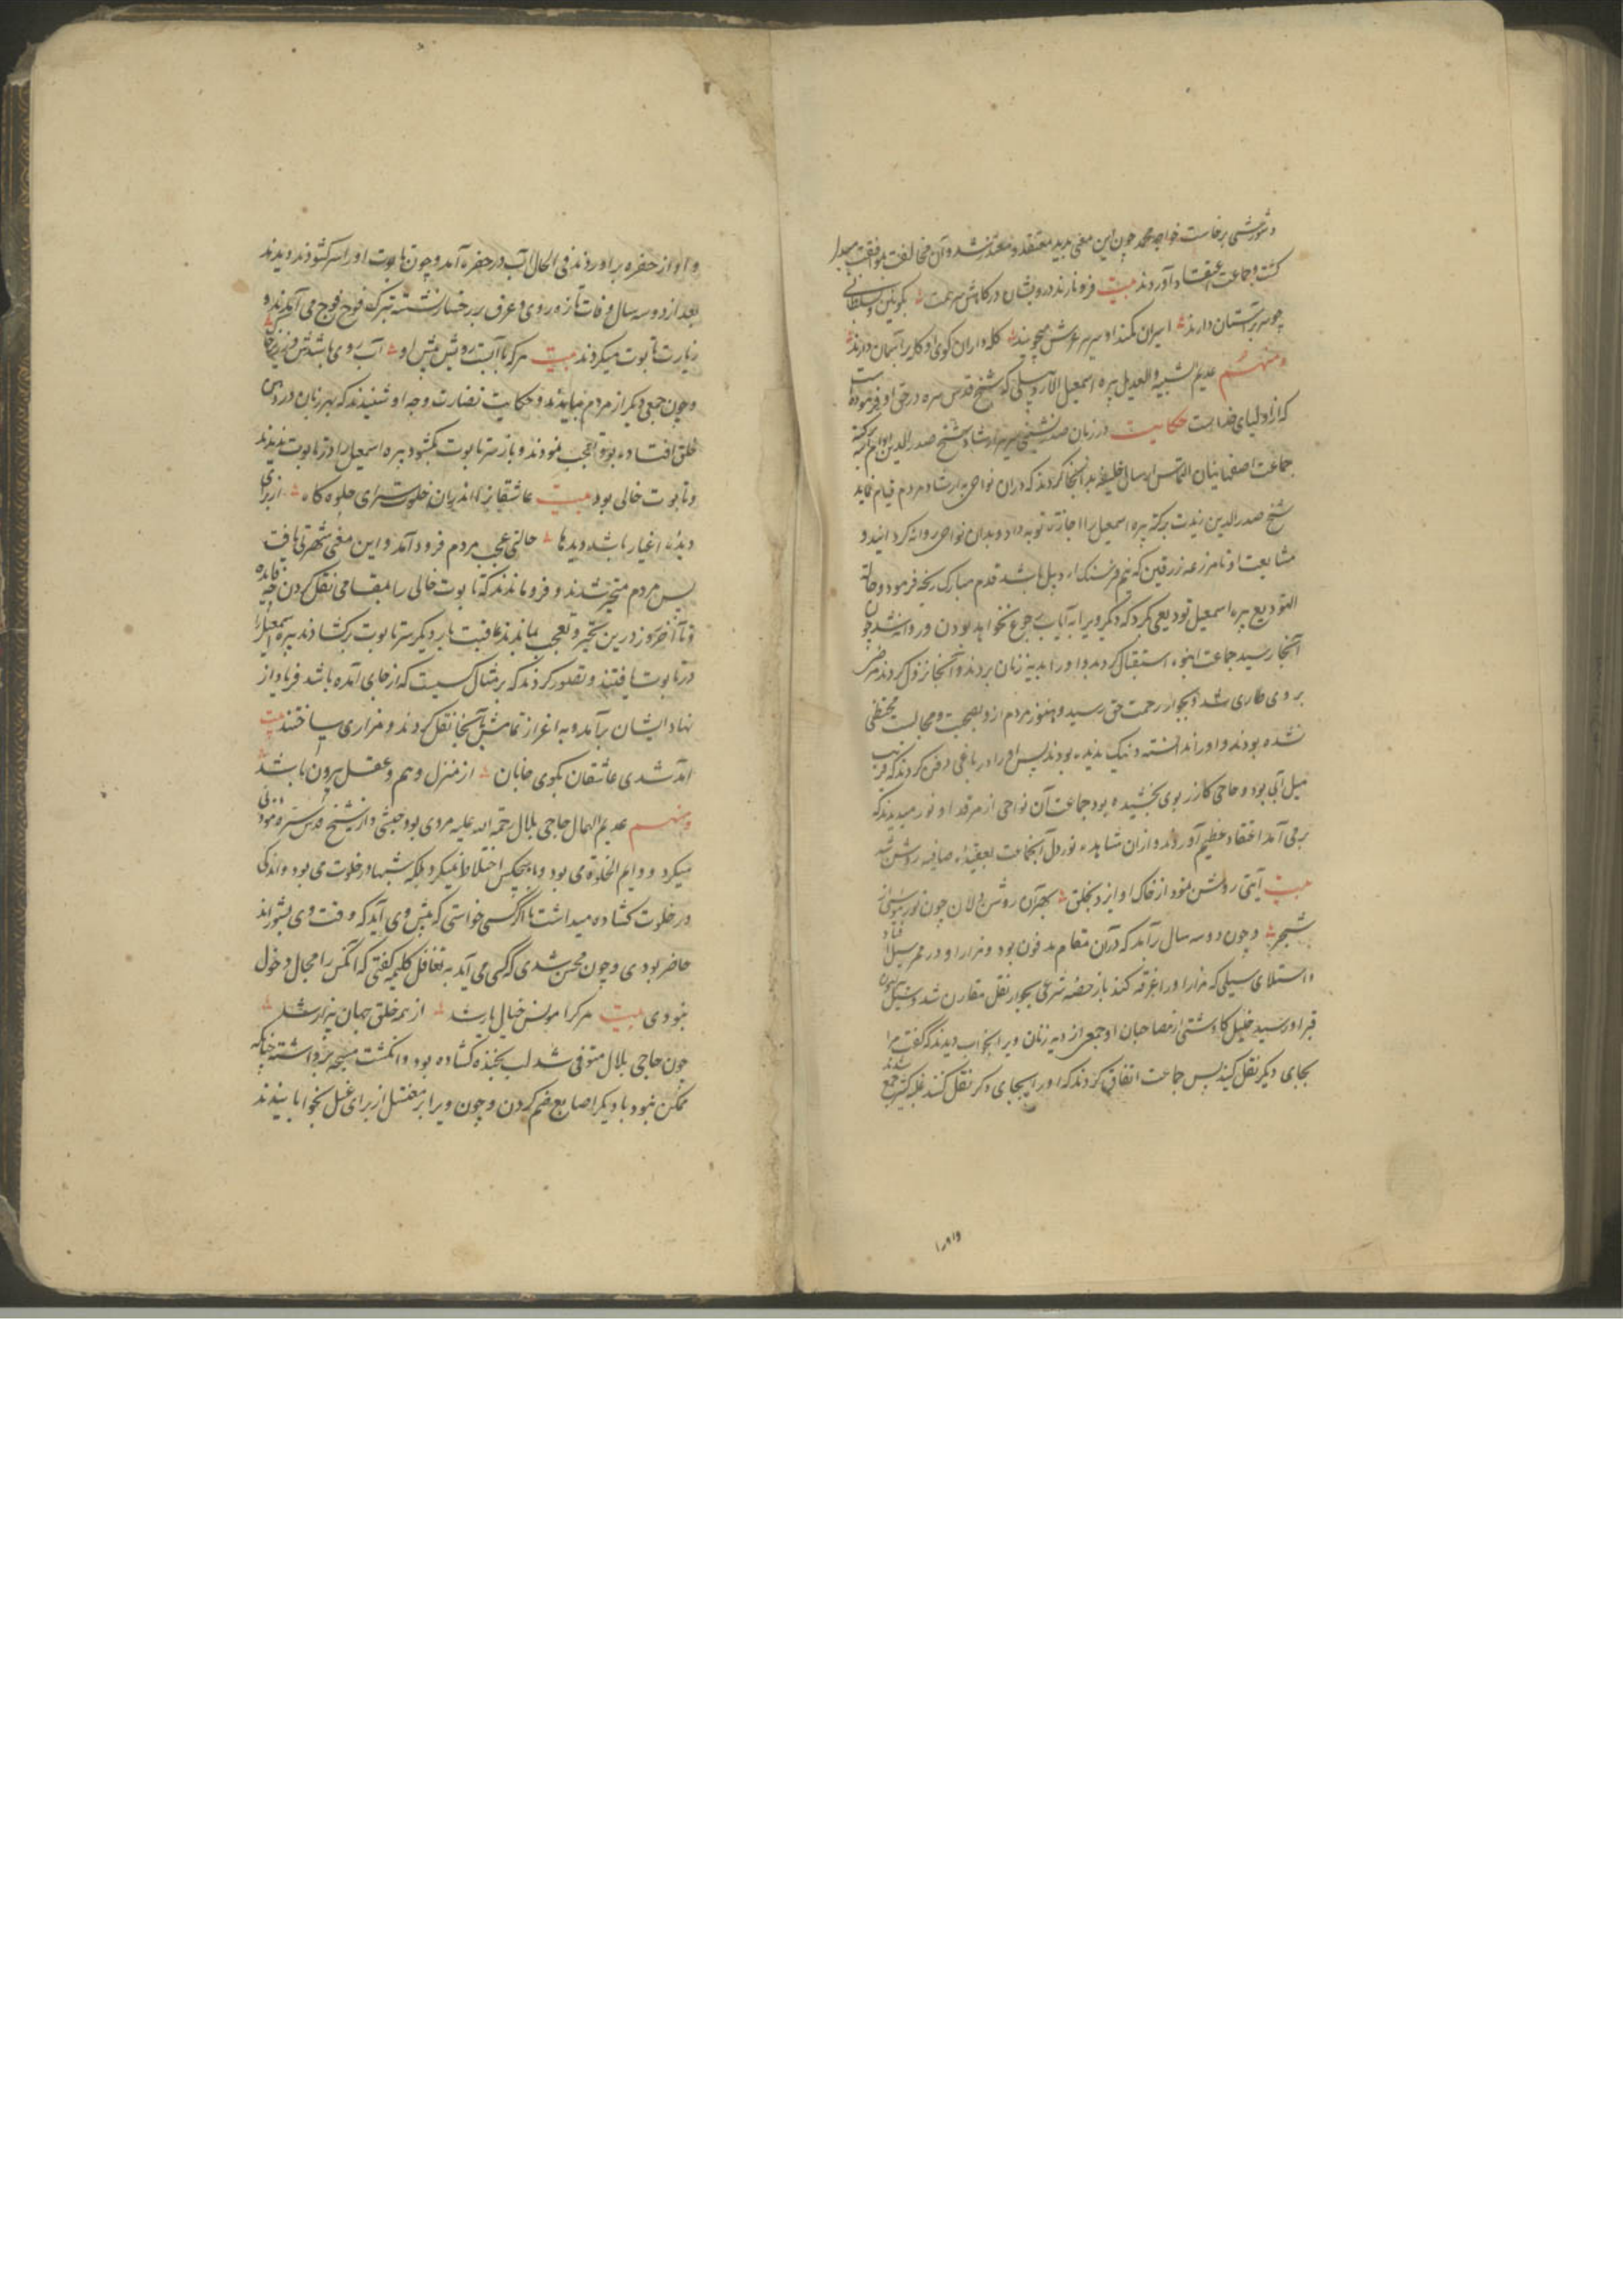 و شورشی برخاست خواجه محمد چون این معنی بدید معتقد و معتذر شد و آن مخالفت بموافقت مبدل
کشت و جماعت اعتقاد آوردند بیت فرو نارند درویشان در کاهش همت
چو سر بر آستان دارند اسیران کمند او سر عرش میجویند کله داران کوی او کلاه بر آسمان دارند
و منهم عدیم الشبیه والعدیل پیره اسمعیل الاردبیلی که شیخ قدس سره در حق او فرموده است
که از اولیای خداست حکایت در زمان صدرنشینی سریر ارشاد شیخ صدرالدین ادام الله برکته
جماعت اصفهانیان التماس ارسال خلیفه بدانجا کردند که در آن نواحی به ارشاد مردم قیام نماید
شیخ صدرالدین زیدت برکته پیره اسمعیل را اجازت توبه داد و بدان نواحی روانه کردانید و
مشایعت او تا مزرعه زرقین که نیم فرسنک اردبیل باشد قدم مبارک رنجه فرمود و حالة
التودیع پیره اسمعیل تودیعی کرد که دیگر ویرا به ایاب رجوع نخواهد بودن و روانه شد چون
آنجا رسید جماعت انبوه استقبال کردند و او را بدیه زنان بردند و آنجا نزول کردند مرضی
بر وی طاری شد و بجوار رحمت حق رسید و هنوز مردم ازو بصحبت و مجالست محتظی
نشده بودند و او را ندانسته و نیک ندیده بودند پس او را در باغی دفن کردند که قریب
میل آبی بود و حاجی کازر بوی بخشیده بود جماعت آن نواحی از مرقد او نور میدیدند که
بر می آمد اعتقاد عظیم آوردند و از آن مشاهده نور دل آنجماعت بعقیده صافیه روشن شد
بیت آیتی روشن نمود از خاک او ایزد بخلق بهر آن روشن دلان چون نور موسی از
شجر و چون دو سه سال برآمد که در آن مقام مدفون بود و مزار او در ممر سیل افتاد
و استلای سیلی که مزار او را غرقه کند باز رخصه شرعی بجواز نقل مقارن شد و سیل بکنار
قبر او رسید خلیل کاودشتی از مصاحبان او و جمعی از دیه زنان ویرا بخواب دیدند که گفت مرا
بجای دیگر نقل کنید پس جماعت اتفاق کردند که او را بجای دکر نقل کنند غلبه کثیر جمع شدند
و او را
و او را از حفره برآوردند فی الحال آب در حفره آمد و چون تابوت او را سر کشودند دیدند
بعد از دو سه سال وفات تازه روی و عرق بر رخسار نشسته تبرک فوج فوج می آمدند و
زیارت تابوت میکردند بیت هرکه با آبست رویش پیش او آب روی باشدش در زیر خاک
و چون جمعی دیگر از مردم بیامدند و حکایت نضارت وجه او شنیدند که بهر زبان در دهن
خلق افتاده بود تعجب نمودند و باز سر تابوت بکشودند پیره اسمعیل را در تابوت ندیدند
و تابوت خالی بود بیت عاشقانرا اندر آن خلوتسرای جلوه کاه از برای
دیده اغیار باشد دیدها حالتی عجب بمردم فرود آمد و این معنی شهرتی یافت
پس مردم متحیر شدند و فروماندند که تابوت خالی را بمقامی نقل کردن چه فایده
و تا آخر روز درین تحیر و تعجب بماندند عاقبت بار دیگر سر تابوت برکشادند پیره اسمعیل را
در تابوت یافتند و تصور کردند که بر مثال کسیست که از جای آمده باشد فریاد از
نهاد ایشان برآمد و به اعزاز تمامش بآنجا نقل کردند و مزاری ساختند بیت
آمد شدی عاشقان بکوی جانان از منزل وهم و عقل بیرون باشد
و منهم عدیم المال حاجی بلال رحمة الله علیه مردی بود حبشی و از شیخ قدس سره موذنی
میکرد و دایم الخلوة می بود و با هیچکس اختلاط نمیکرد بلکه شبها در خلوت می بود و اندکی
در خلوت کشاده میداشت تا اگر کسی خواستی که پیش وی آید که وقت وی بشوراند
حاضر بودی و چون محس شدی که کسی می آید به تغافل کلیمه گفتی که آنکس را مجال دخول
نبودی بیت هرکرا مونس خیال یار شد از همه خلق جهان بیزار شد
چون حاجی بلال متوفی شد لب بخنده کشاده بود و انگشت مسبحه برداشته چنانکه
ممکن نبود با دیگر اصابع ضم کردن و چون ویرا بر مغتسل از برای غسل بخوابانیدند